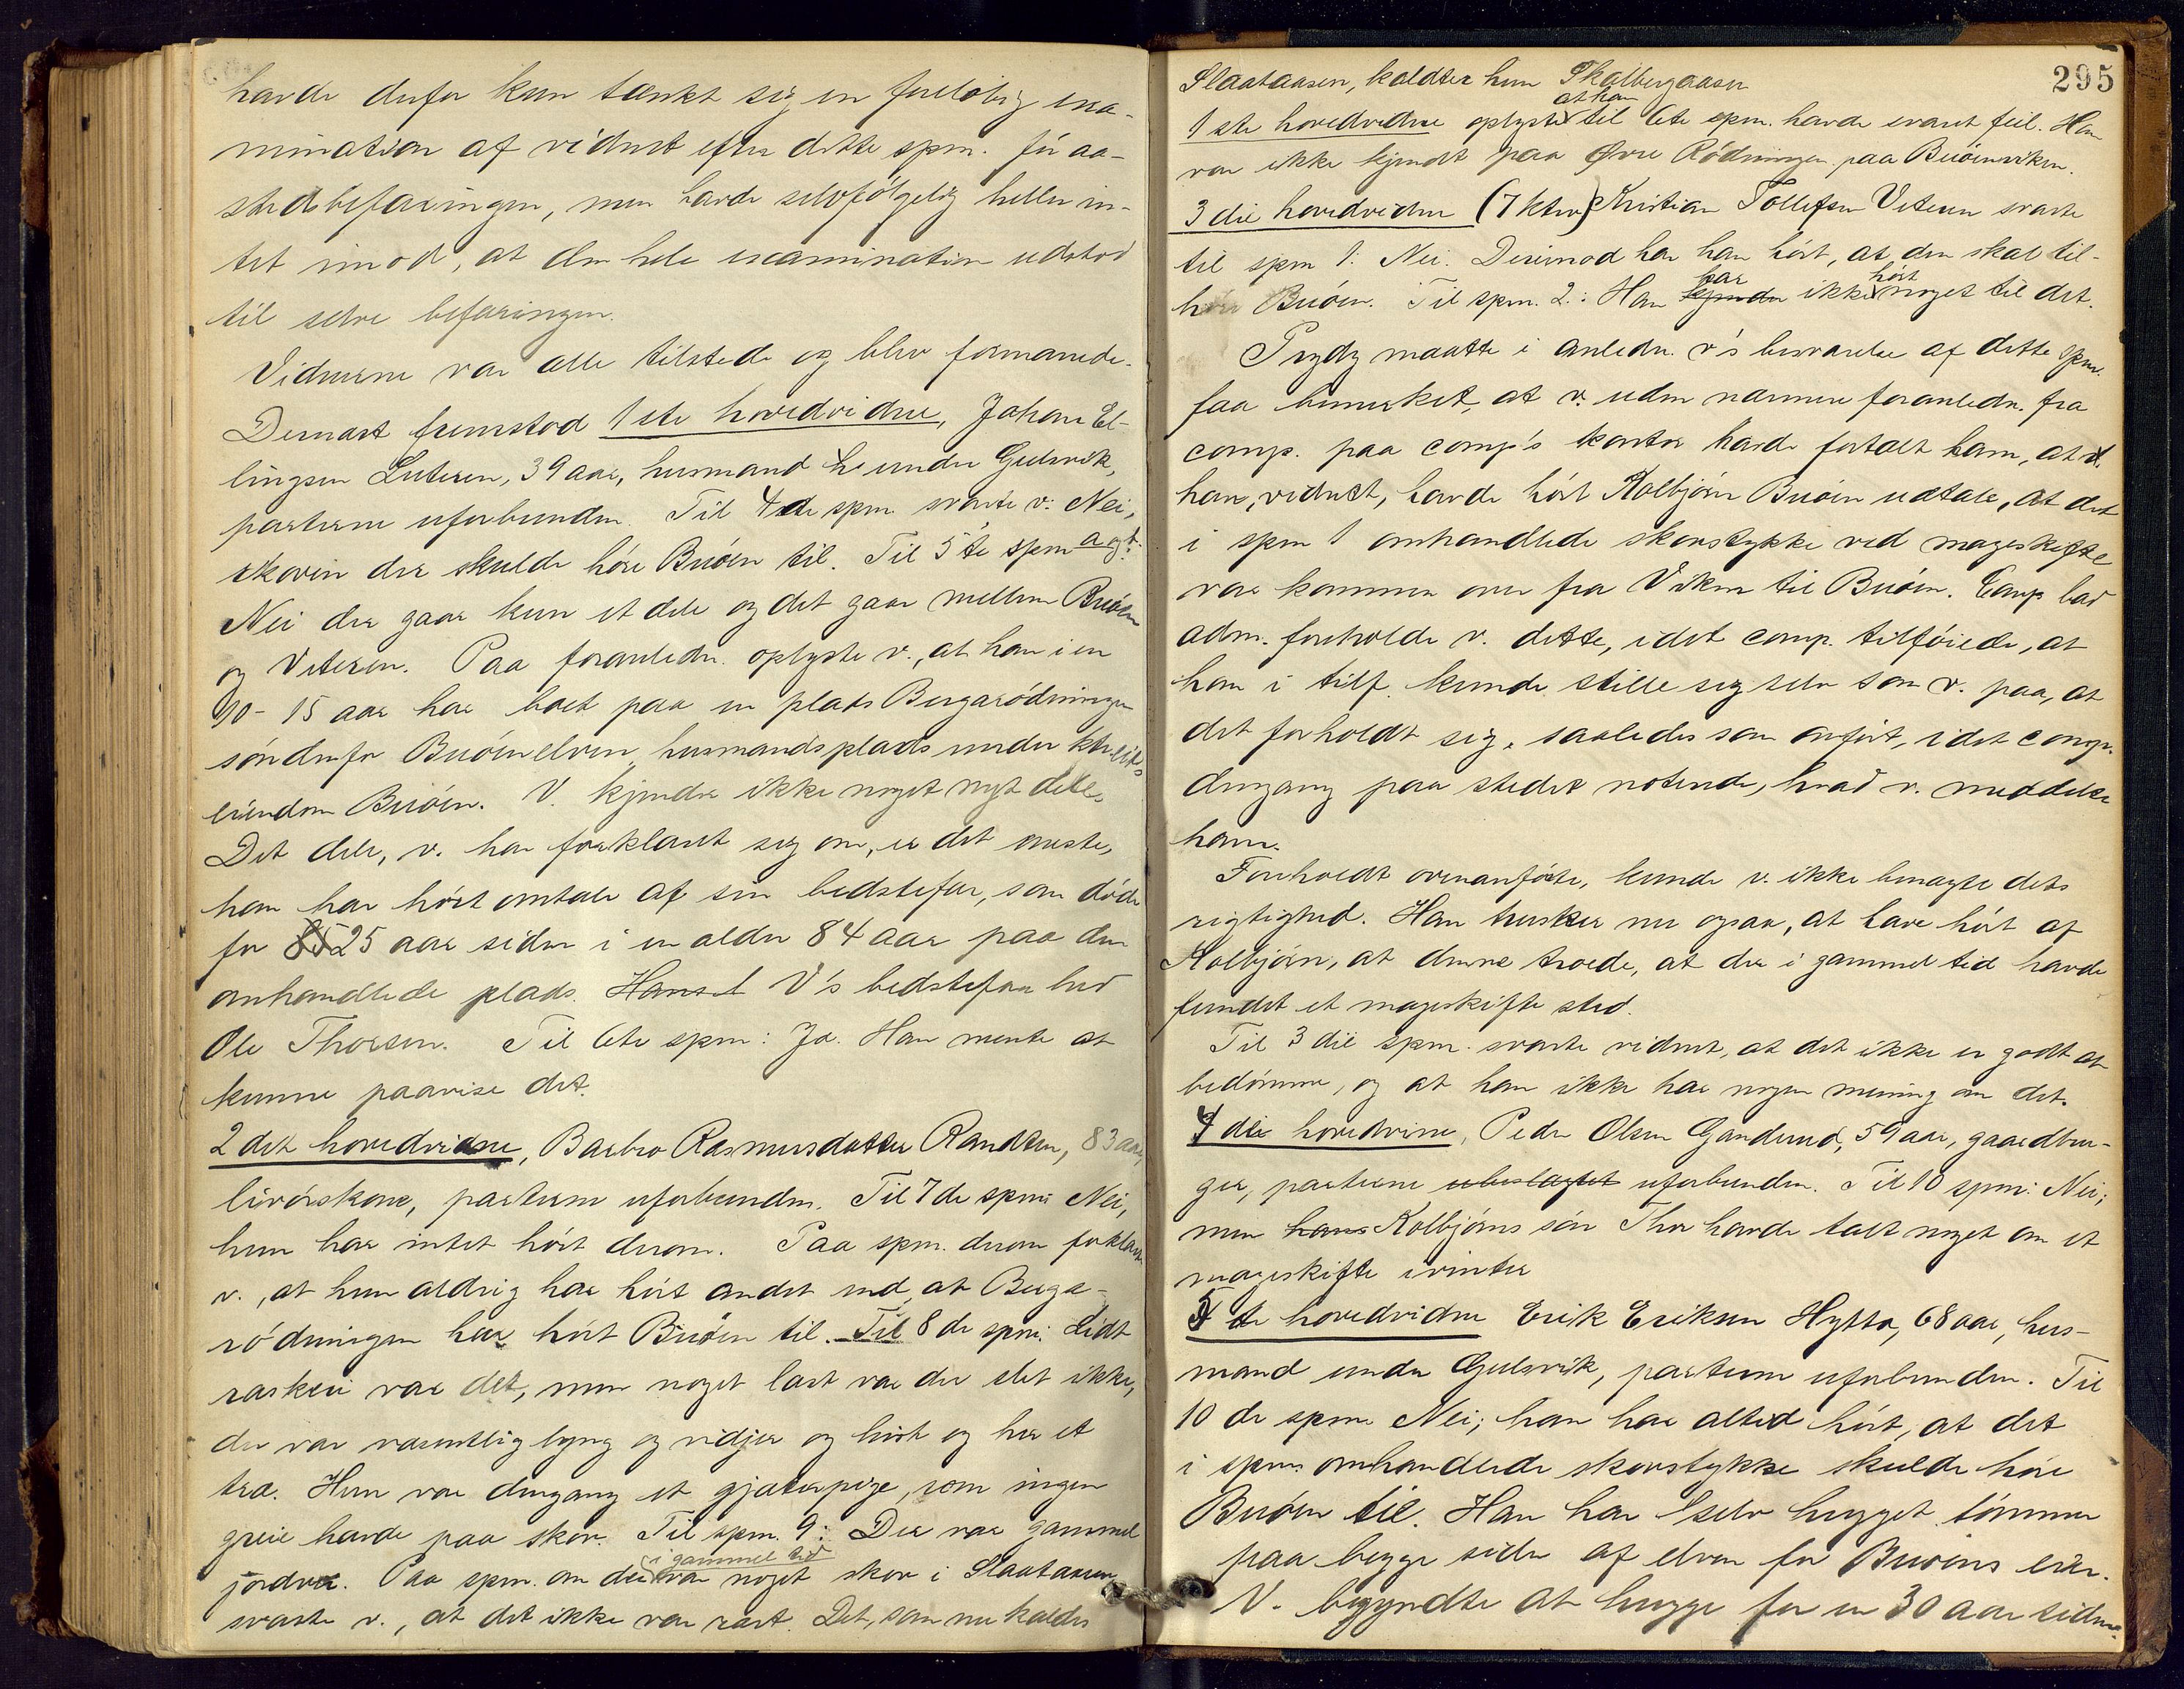 havde derfor kun tænkt sig en foreløbig exa-
mination af vidnet efter dette spm. før aa-
stedsbefaringen, men havde selvfølgelig heller in-
tet imod, at den hele examination udstod
til selve befaringen.
Vidnerne var alle tilstede og blev formanede.
Dernæst fremstod 1ste hovedvidne, Johan El-
lingsen Sæteren, 39 aar, husmand under Gulsvik,
parterne uforbunden. Til 4de spm svarte v: Nei,
skoven der skulde høre Buøen til. Til 5te spm a og b:
Nei der gaar kun et dele og det gaar mellem Buøen
og Viteren. Paa foranledn. oplyste v., at han i en
10-15 aar har boet paa en plads Bergarødningen
søndenfor Buøenelven, husmandsplads under
eiendom Buøen. V. kjender ikke noget nyt dele.
Det dele, v. har forklaret sig om, er det eneste,
han har hørt omtale af sin bedstefar, som døde
for 25 aar siden i en alder 84 aar paa den
omhandlede plads. Hans V's bedstefar hed
Ole Thorsen. Til 6te spm: Ja. Han mente at
kunne paavise det.
2det hovedvidne, Barbro Rasmusdatter Randten, 83 aar,
livørskone, parterne uforbunden. Til 7de spm: Nei,
hun har intet hørt derom. Paa spm. derom forklarer
v., at hun aldrig har hørt andet end, at Berga-
rødningen har hørt Buøen til. Til 8de spm: Lidt
raskeri var det, men noget last var der slet ikke,
der var væsentlig lyng og vidjer og hist og her et
træ. Hun var dengang et gjæterpige, som ingen
greie havde paa skov. Til spm. 9: Der var gammel
i gammel tid
jordvei. Paa spm. om der var noget skov i Slaataasen,
svarte v., at det ikke var rart. Det, som nu kaldes
295
Slaataasen, kaldtes hun Skalbergaasen
at han
1ste hovedvidne oplyste til 6te spm. havde svaret feil. Han
var ikke kjendt paa Øvre Rødningen paa Buøenviken.
3die hovedvidne (7 ktw) Kristian Tollefsen Viteren svarte
til spm 1: Nei. Derimod har han hørt, at den skal til-
har hørt
høre Buøen. Til spm. 2: Han kjender ikke noget til det.
Prydz maatte i anledn. v's besvarelse af dette spm.
faa bemærket, at v. uden nærmere foranledn. fra
comp. paa comp's kontor havde fortalt ham, at
han, vidnet, havde hørt Kolbjørn Buøen udtale, at det
i spm 1 omhandlede skovstykke ved mageskifte
var kommen over fra Viken til Buøen. Comp bad
adm. foreholde v. dette, idet comp. tilføiede, at
han i tilf. kunde stille sig selv som v. paa, at
det forholdt sig, saaledes som anført, idet comp.
dengang paa stedet noterede, hvad v. meddelte
ham.
Foreholdt ovenanførte, kunde v. ikke benægte dets
rigtighed. Han husker nu ogsaa, at have hørt af
Kolbjørn, at denne troede, at der i gammel tid havde
fundet et mageskifte sted.
Til 3die spm. svarte vidnet, at det ikke er godt at
bedømme, og at han ikke har nogen mening om det.
4die hovedvine, Peder Olsen Gandrud, 59 aar, gaardbru-
ger, parterne ubeslægtet uforbunden. Til 10 spm: Nei;
men hans Kolbjørns søn Thor havde talt noget om et
mageskifte ivinter
5te hovedvidne Erik Eriksen Hytta, 68 aar, hus-
mand under Gulsvik, parterne uforbunden. Til
10de spm: Nei; han har altid hørt, at det
i spm omhandlede skovstykke skulde høre
Buøen til. Han har selv hugget tømmer
paa begge sider af elven for Buøens eier.
V. begyndte at hugge for en 30 aar siden.